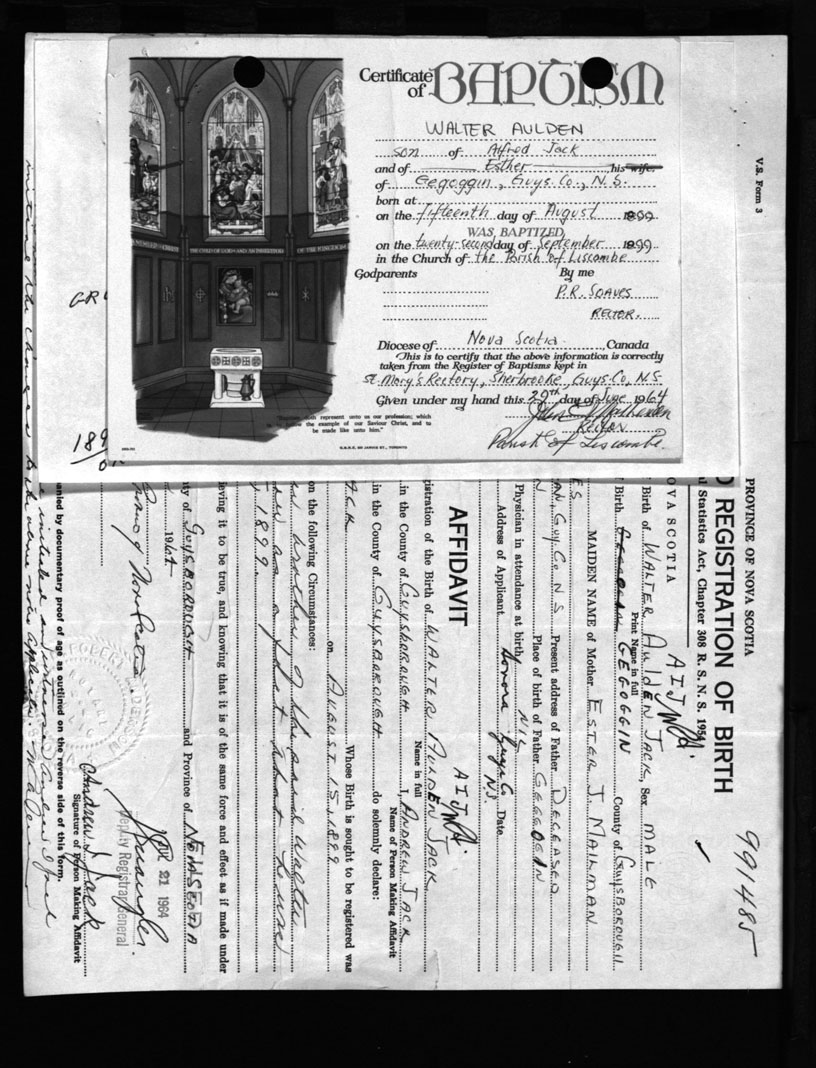 Certificate of BAPTISM
WALTER AULDEN
son of Alfred Jack
and of Esther his wife.
of Gegoggin, Guys. Co., N.S.
born at
on the fifteenth day of August 1899
WAS BAPTIZED
on the twenty-second day of September 1899
in the Church of the Parish of Liscombe
Godparents By me
P.R. Soaves
RECTOR.
Diocese of Nova Scotia, Canada
This is to certify that the above information is correctly
taken from the Register of Baptisms kept in
St. Mary's Rectory, Sherbrooke, Guys. Co., N.S.
Given under my hand this 29th day of June 1964
Rector
Parish of Liscombe.
doth represent unto us our profession; which
the example of our Saviour Christ, and to
be made like unto him."
GRO
189
V.S. Form 3
991485
PROVINCE OF NOVA SCOTIA
D REGISTRATION OF BIRTH
l Statistics Act, Chapter 308 R. S. N. S. 1954
OVA SCOTIA
AIJ
Birth of WALTER AULDEN JACK, Sex MALE
Print Name in full
Birth GEGOGGIN County of GUYSBOROUGH
MAIDEN NAME of Mother ESTER J. MAILMAN
ES
AN, GUY. CO. N S Present address of Father DECEASED
N Place of birth of Father GEGOGGIN
Physician in attendance at birth NIL
Address of Applicant Guys Co N.S. Date
AFFIDAVIT
AIJ
istration of the Birth of WALTER AULDEN JACK
Name in full
in the County of GUYSBOROUGH I, ANDREW JACK
Name of Person Making Affidavit
in the County of GUYSBOROUGH do solemnly declare:
ACK Whose Birth is sought to be registered was
on AUGUST 15, 1899
on the following Circumstances:
brother of the said Walter
1899.
ieving it to be true, and knowing that it is of the same force and effect as if made under
ty of GUYSBOROUGH and Province of NOVA SCOTIA
1964
Nova Scotia.
21 1964
Deputy Registrar General
Andrew I. Jack
Signature of Person Making Affidavit
anied by documentary proof of age as outlined on the reverse side of this form.
initial the changes to the same